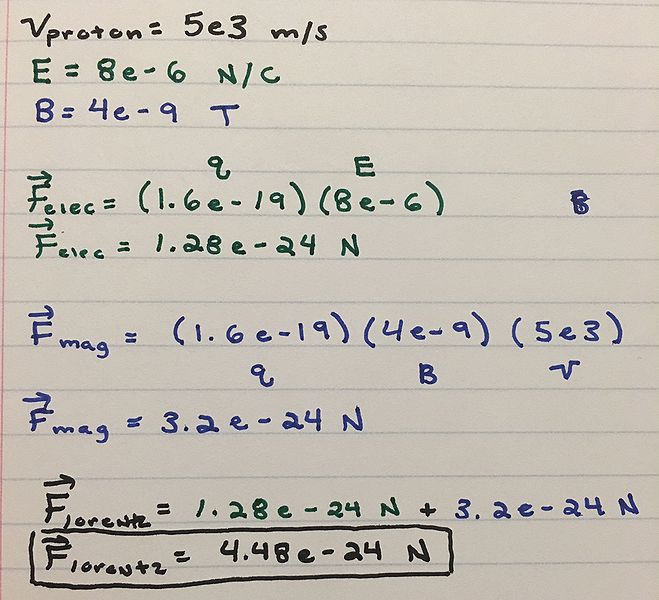 Vproton = 5e3 m/s
E = 8e-6 N/C
B = 4e-9 T
q E
F⃗elec = (1.6e-19)(8e-6)
F⃗elec = 1.28e-24 N
F⃗mag = (1.6e-19)(4e-9)(5e3)
q B v
F⃗mag = 3.2e-24 N
F⃗lorentz = 1.28e-24 N + 3.2e-24 N
F⃗lorentz = 4.48e-24 N